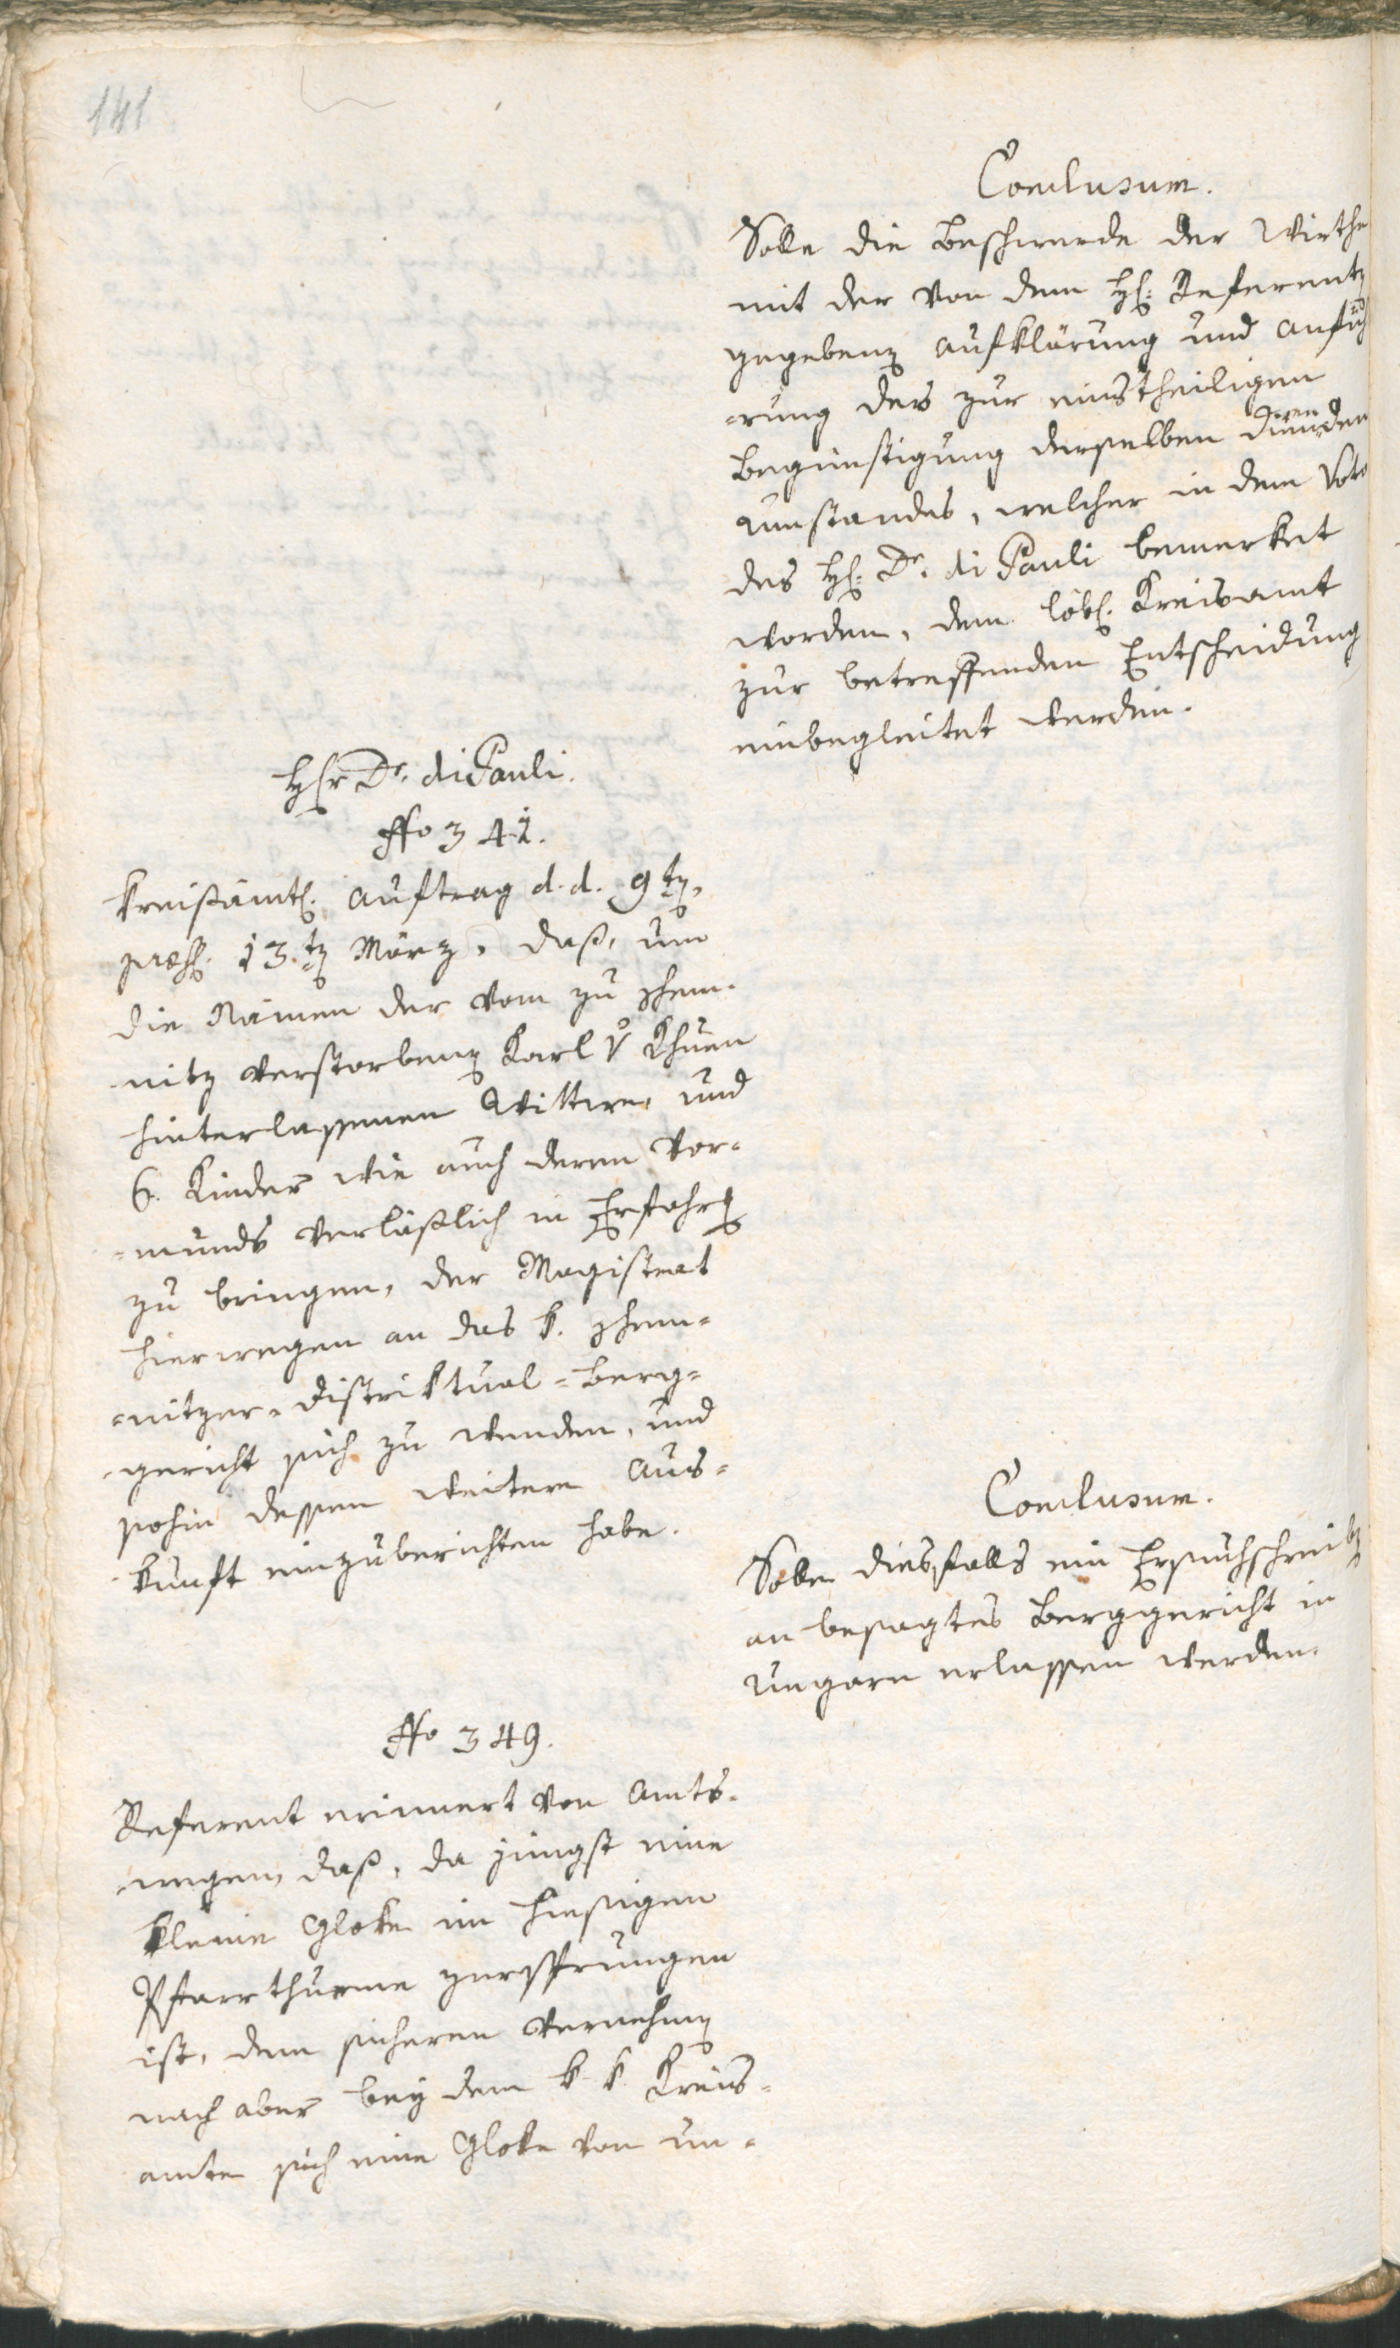 141
Conclusum.
Solle die Beschwerde der Wirthe
mit der von dem H: Referenten
gegebenen Aufklärung und Anfüh
-rung des zur einstheiligen
Begünstigung derselben dienenden
Umstandes, welcher in dem Voto
des H: Dr. di Pauli bemerket
worden, dem löbl. Kreisamt
zur betreffenden Entscheidung
einbegleitet werden.
Herr Dr. di Pauli.
No 341.
Kreisämtl. Auftrag d. d. 9ten,
præs. 13.ten März, daß, um
die Namen der vom zu Schem-
nitz verstorbenen Karl v Khuen
hinterlassenen Wittwe, und
6. Kinder wie auch deren Vor-
-munds verläßlich in Erfahrung
zu bringen, der Magistrat
hierwegen an das k. Schem-
-nitzer-Districktual-Berg-
gericht sich zu wenden, und
sohin dessen weitere Aus-
kunft einzuberichten habe.
Conclusum.
Solle diesfalls ein Ersuchschreiben
an besagtes Berggericht in
Ungarn erlassen werden.
No 349.
Referent erinnert von Amts-
wegen, daß, da jüngst eine
kleine Gloke im hiesigen
Pfarrthurme zersprungen
ist, dem sicheren Vernehmen
nach aber bey dem k. k. Kreis-
amte sich eine Gloke von un-